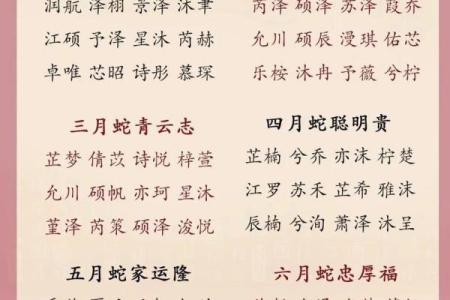 润航 泽栩 景泽 沐聿
江硕 予泽 星沐 芮赫
卓唯 芯昭 诗彤 慕琛
芮泽 硕泽 苏泽 霞乔
允川 硕辰 漫琪 佑芯
乐桉 沐冉 予薇 兮柠
三月蛇青云志
芷梦 倩苡 诗悦 梓萱
允川 硕帆 亦珂 星沐
堇泽 芮策 硕泽 浚悦
四月蛇聪明贵
芷楠 兮乔 亦沫 柠楚
江罗 苏禾 芷希 雅沫
辰楠 兮洵 萧泽 沐呈
五月蛇家运隆
六月蛇忠厚福